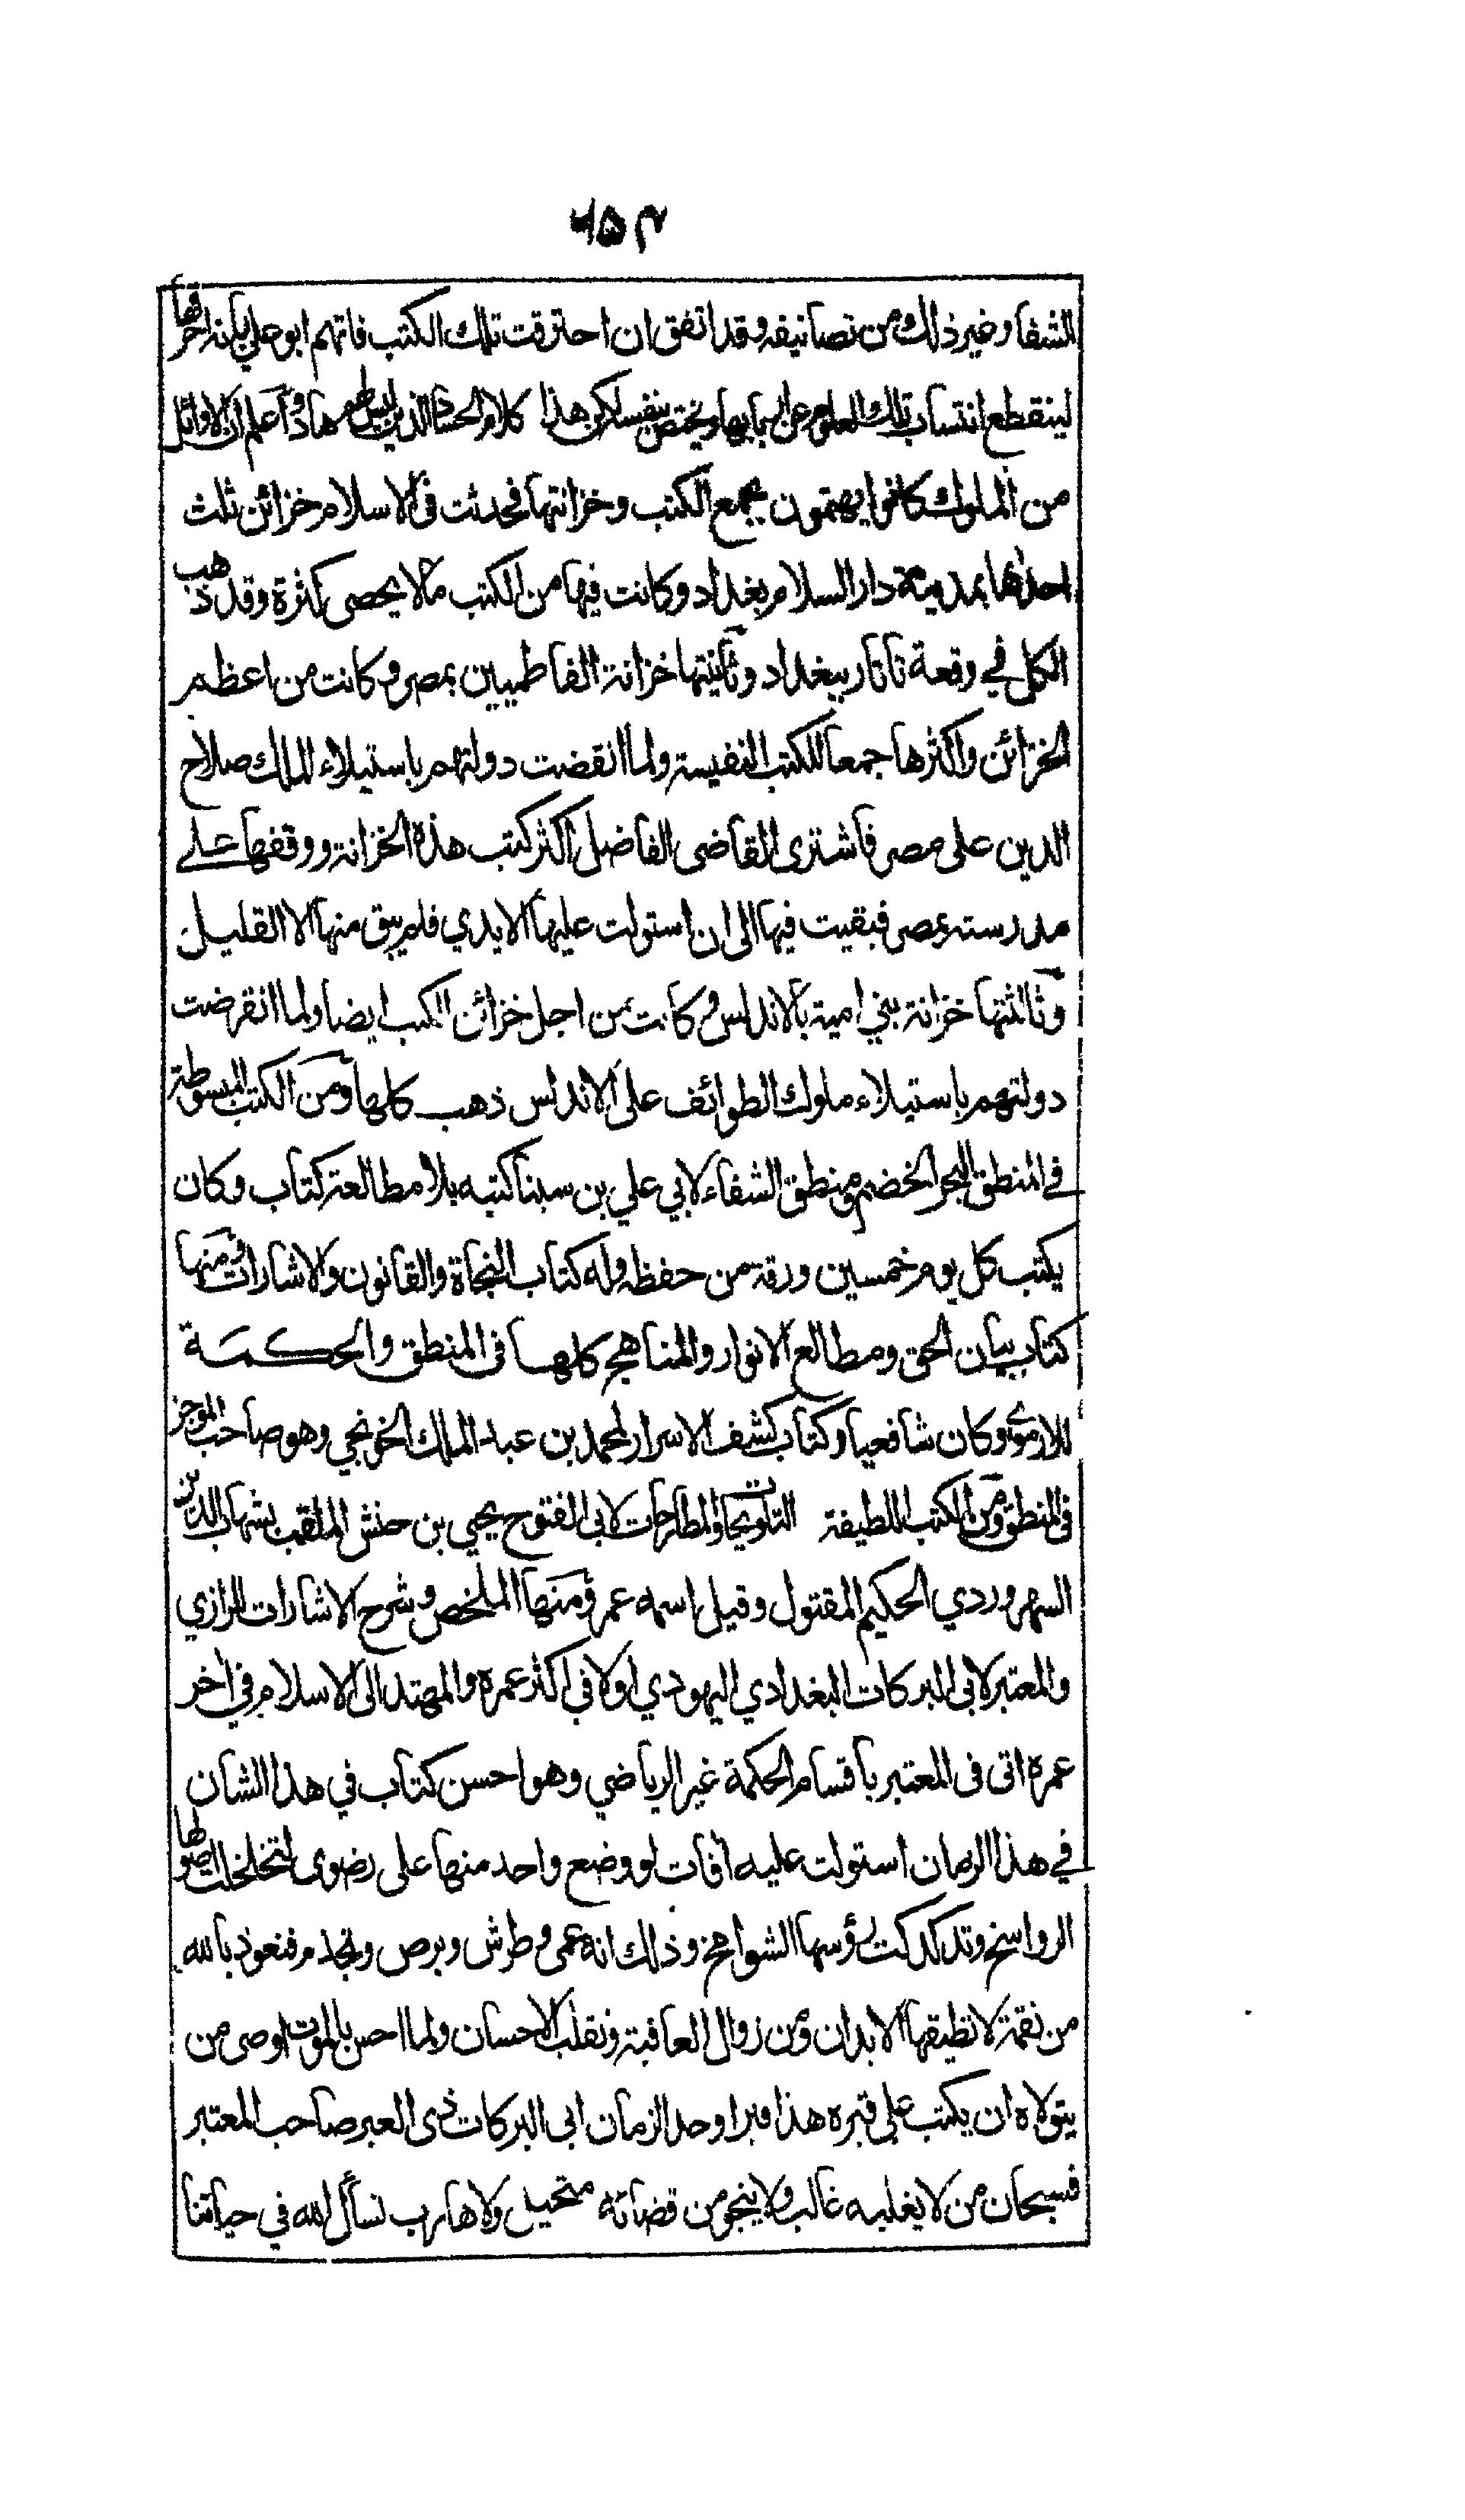 ٤٥٣
الشفا وغير ذلك من تصانيفه وقد اتفق ان احترقت تلك الكتب فاتهم ابو علي بانه احرقها
لينقطع انتساب تلك العلوم عن اربابها ويختص بنفسه لكن هذا كلام الحساد الذين ليس لهم هاد واعلم ان الاوائل
من الملوك كانوا يهتمون بجمع الكتب وخزانتها فحدثت في الاسلام خزائن ثلث
احداها بمدينة دار السلام بغداد وكانت فيها من الكتب مالا يحصى كثرة وقد ذهب
الكل في وقعة تاتار ببغداد وثانيتها خزانة الفاطميين بمصر وكانت من اعظم
الخزائن واكثرها جمعا للكتب النفيسة ولما انقضت دولتهم باستيلاء الملك صلاح
الدين على مصر فاشترى القاضى الفاضل اكثر كتب هذه الخزانة ووقفها على
مدرسته بمصر فبقيت فيها الى ان استولت عليها الايدي فلم يبق منها الا القليل
وثالثتها خزانة بني امية بالاندلس وكانت من اجل خزائن الكتب ايضا ولما انقرضت
دولتهم باستيلاء ملوك الطوائف على الاندلس ذهب كلها ومن الكتب المبسوطة
في المنطق البحر الخضم ومنطق الشفاء لابي علي بن سينا كتبه بلا مطالعة كتاب وكان
يكتب كل يوم خمسين ورقة من حفظه وله كتاب النجاة والقانون والاشارات ومنها
كتاب بيان الحق ومطالع الانوار والمناهج كلها في المنطق والحكمة
للارموي وكان شافعيا وكتاب كشف الاسرار لمحمد بن عبد الملك الخونجي وهو صاحب الموجز
في المنطق ومن الكتب اللطيفة التلويحات والمطارحات لابي الفتوح يحيى بن حنش الملقب بشهاب الدين
السهروردي الحكيم المقتول وقيل اسمه عمر ومنها الملخص وشرح الاشارات للرازي
والمعتبر لابى البركات البغدادي اليهودي اولا في اكثر عمره والمهتد الى الاسلام في اخر
عمره اتى فى المعتبر باقسام الحكمة غير الرياضي وهو احسن كتاب في هذا الشان
في هذا الزمان استولت عليه افات لو وضع واحد منها على رضوى لتخلخلت اصولها
الرواسخ وتدكدكت رؤسها الشوامخ وذلك انه عمى وطرش وبرص وتجذم فنعوذ بالله
من نقمة لا تطيقها الابدان ومن زوال العافية وتقلب الاحسان ولما احس بالموت اوصى من
يتولاه ان يكتب على قبره هذا قبر اوحد الزمان ابى البركات ذى العبر صاحب المعتبر
فسبحان من لا يغلبه غالب ولا ينجو من قضائه متحيل ولا هارب نسأل الله في حياتنا